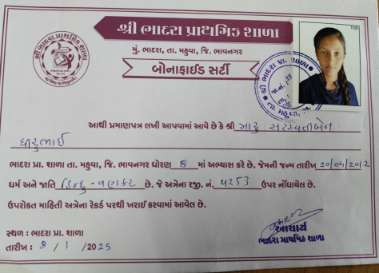 શ્રી ભાદરા પ્રાથમિક શાળા
મું. ભાદરા, તા. મહુવા, જિ. ભાવનગર
બોનાફાઈડ સર્ટી
આથી પ્રમાણપત્ર લખી આપવામાં આવે છે કે શ્રી
ભાદરા પ્રા. શાળા તા. મહુવા, જિ. ભાવનગર ધોરણ માં અભ્યાસ કરે છે. જેમની જન્મ તારીખ 20/04/2012
ધર્મ અને જાતિ હિન્દુ - વણકર છે. જે અત્રેના રજી. નં. ૫૨૬૩ ઉપર નોંધાયેલ છે.
ઉપરોક્ત માહિતી અત્રેના રેકર્ડ પરથી ખરાઈ કરવામાં આવેલ છે.
સ્થળ : ભાદરા પ્રા. શાળા
તારીખ : 8 / 1 / 2025
આચાર્ય
ભાદરા પ્રાથમિક શાળા